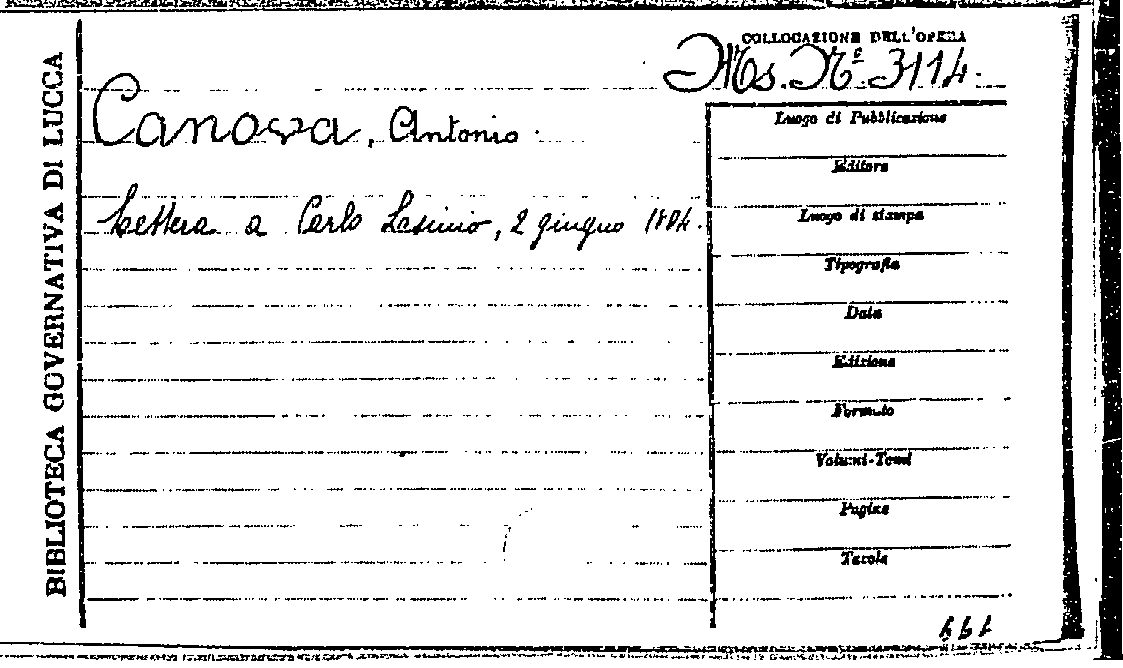 BIBLIOTECA GOVERNATIVA DI LUCCA
COLLOCAZIONE DELL'OPERA
Ms. Nº 3114.
Canova, Antonio.
Lettera a Carlo Lasinio, 2 giugno 1804.
Luogo di Pubblicazione
Editore
Luogo di stampa
Tipografia
Data
Edizione
Formato
Volumi-Tomi
Pagine
Tavole